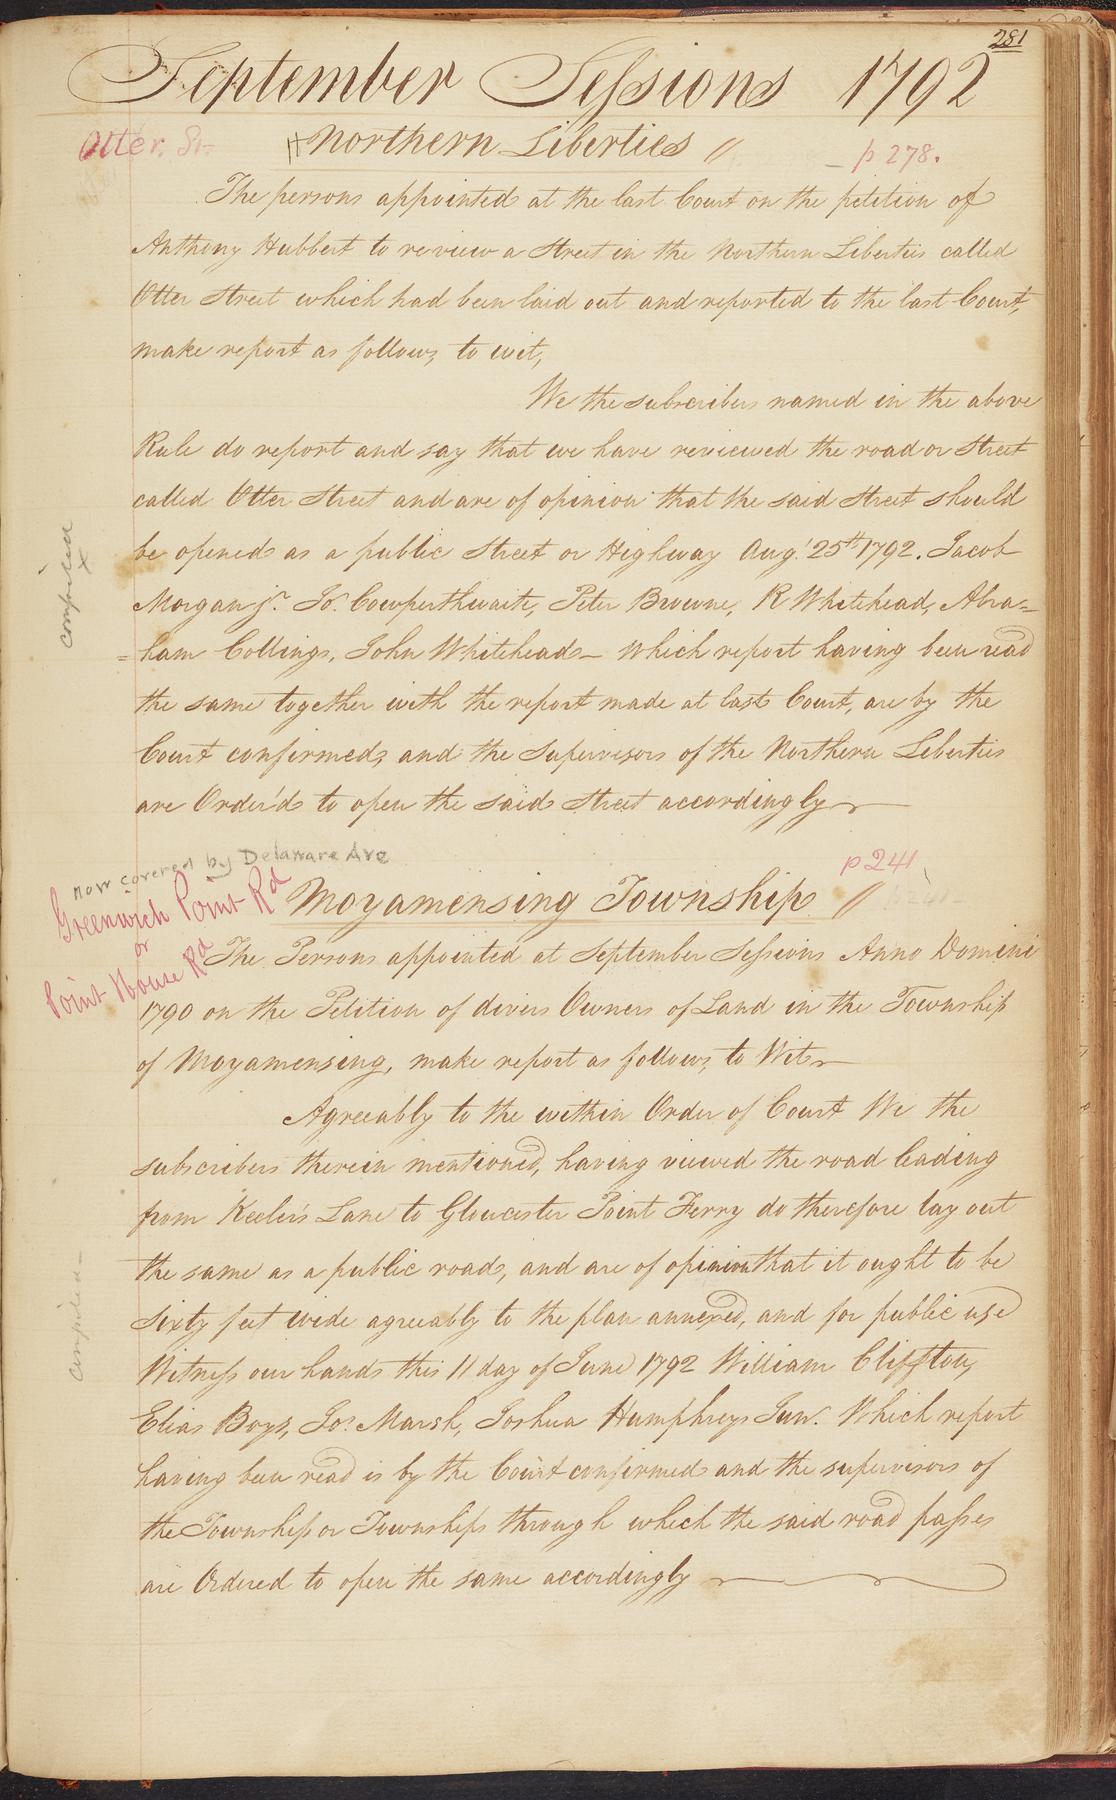 281
September Sessions 1792
Otter St.
Northern Liberties //
p 278.
The persons appointed at the last Court on the petition of
Anthony Hubbert to review a Street in the Northern Liberties called
Otter Street which had been laid out and reported to the last Court,
make report as follows, to wit,
We the subscribers named in the above
Rule do report and say that we have reviewed the road or Street
called Otter Street and are of opinion that the said Street should
be opened as a public Street or Highway Augt. 25th 1792. Jacob
Morgan jr. Jos. Cowperthwaite, Peter Browne, R Whitehead, Abra=
=ham Collings, John Whitehead – Which report having been read
the same together with the report made at last Court, are by the
Court confirmed, and the Supervisors of the Northern Liberties
are Order'd to open the said Street accordingly
compiled
x
now covered by Delaware Ave
Greenwich Point Rd
or
Point House Rd
p 241
Moyamensing Township //
p 241
The Persons appointed at September Sessions Anno Domini
1790 on the Petition of divers Owners of Land in the Township
of Moyamensing, make report as follows, to Wit
Agreeably to the within Order of Court We the
subscribers therein mentioned, having viewed the road leading
from Keeler's Lane to Gloucester Point Ferry do therefore lay out
the same as a public road, and are of opinion that it ought to be
sixty feet wide agreeably to the plan annexed, and for public use
Witness our hands this 11 day of June 1792 William Cliffton,
Elias Boys, Jos. Marsh, Joshua Humphreys Junr. Which report
having been read is by the Court confirmed and the supervisors of
the Township or Townships through which the said road passes
are Ordered to open the same accordingly
compiled